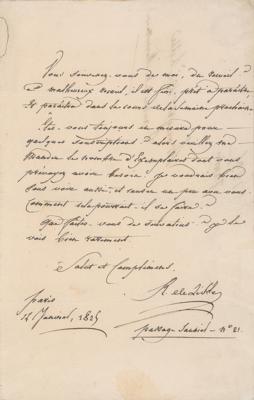 Vous souvenez-vous de moi, du recueil
malheureux recueil, il est fini, prêt à paraître
Et paraîtra dans le cours de la semaine prochaine
Êtes-vous toujours en mesure pour
quelques souscriptions? alors veuillez me
mander le nombre d'Exemplaires dont vous
pouvez avoir besoin. Je voudrais bien
vous voir aussi, et causer un peu avec vous.
Comment cela pourrait-il se faire?
Que faites-vous de
vois bien rarement
Salut et Compliment.
R. de Lisle
paris
Janvier, 1825
passage Saulnier - N° 21.